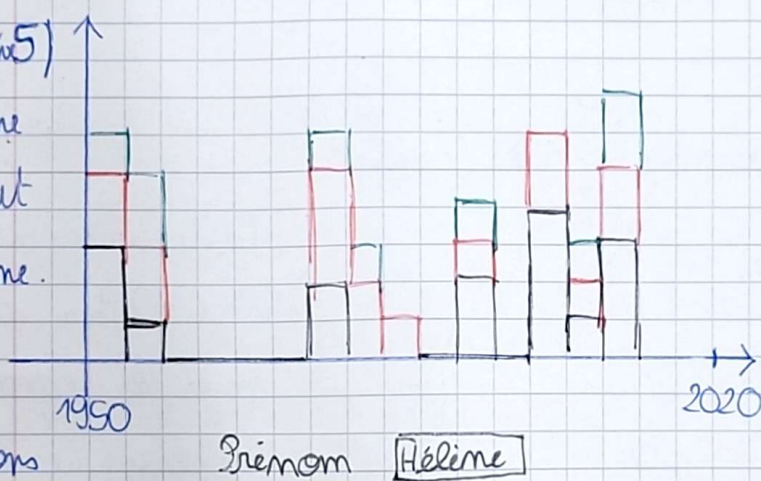 5)
ne
ut
ne.
1950 2020
ons Prénom Hélène